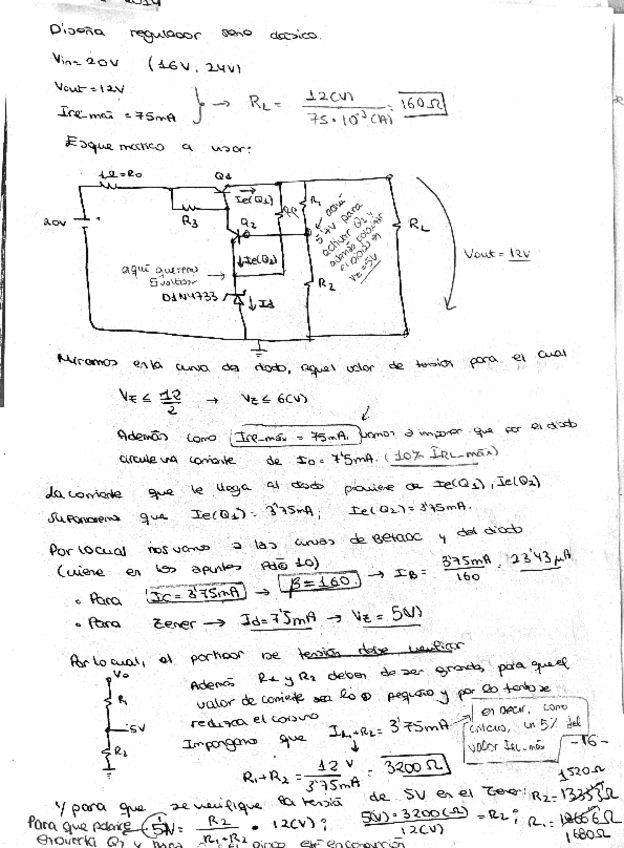 2014
Diseña regulador serie clásico.
Vin = 20V (16V, 24V)
Vout = 12V
IRL-máx = 75mA } → RL = 12(V) / 75·10⁻³(A) = 160Ω
Esquemático a usar:
1Ω=R0 Q1
Ie(Q1)
R3 Q2 Rp R1
20V
← aquí 5'7V para activar Q2 y
VZ=5V
RL
Ie(Q2)
aquí queremos 5 voltios
D1N4733 ↓Id R2
Vout = 12V
Miramos en la curva del diodo, aquel valor de tensión para el cual
VZ ≤ 12/2 → VZ ≤ 6(V)
Además como IRL-máx = 75mA. vamos a imponer que por el diodo
circule una corriente de ID = 7'5mA. (10% IRL-máx)
La corriente que le llega al diodo proviene de Ie(Q1), Ie(Q2)
Suponemos que Ie(Q1) = 3'75mA; Ie(Q2) = 3'75mA.
Por lo cual nos vamos a las curvas de BetaDC y del diodo
(viene en los apuntes PAG 10)
• Para IC = 3'75mA → β = 160 → IB = 3'75mA / 160 = 23'43μA
• Para Zener → Id = 7'5mA → VZ = 5(V)
Por lo cual, el
Vo
R1
5V
R2
Además R1 y R2 deben de ser grandes, para que el
valor de corriente sea lo pequeño y por lo tanto se
reduzca el consumo
Impongamos que IR1+R2 = 3'75mA
es decir, como
criterio, un 5% del
valor IRL-máx
-16-
R1+R2 = 12V / 3'75mA = 3200Ω
Y para que se verifique la tensión de 5V en el Zener: R2 = 1520Ω
Para que 5V = R2 / R1+R2 · 12(V); 5(V)·3200(Ω) / 12(V) = R2; R1 = 1680Ω